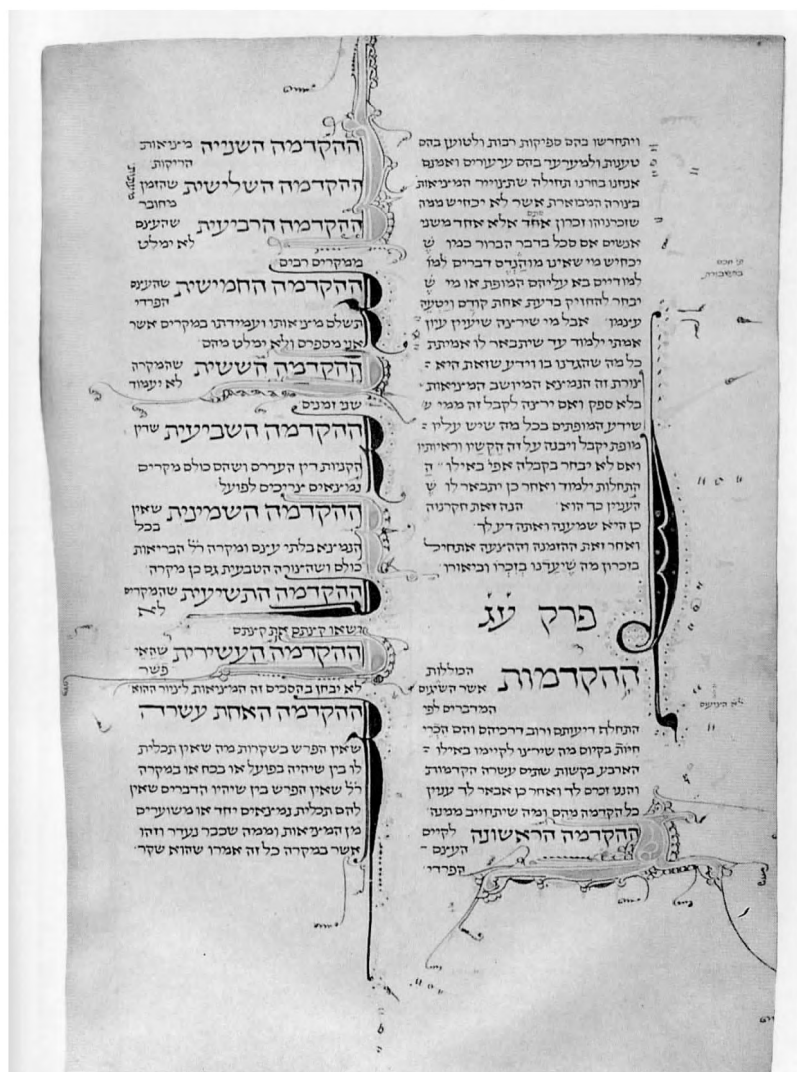 ויתחדשו בהם ספיקות רבות ולטוען בהם
טענות ולמערער בהם ערעורים ואמנם
אנחנו בחרנו תחילה שתצוייר המציאות
בצורה המבוארת אשר לא יכחיש ממה
שזכרנוהו זכרון אחד אלא אחד משני
אנשים אם סכל בדבר הברור כמו ש
יכחיש מי שאינו מוהנדס דברים למו
למודיים בא עליהם המופת או מי ש
יבחר להחזיק בדעת אחת קודם ויטעה
עצמו אבל מי שירצה שיעיין עיון
אמתי ילמוד עד שיתבאר לו אמיתת
כל מה שהגדנו בו וידע שזאת היא
צורת זה הנמצא המיושב המציאות
בלא ספק ואם ירצה לקבל זה ממי ש
שידע המופתים בכל מה שיש עליו
מופת יקבל ויבנה על זה הקשיו וראיותיו
ואם לא יבחר בקבלה אפי באילו ה
התחלות ילמוד ואחר כן יתבאר לו ש
הענין כך הוא הנה זאת חקרנוה
כן היא שמענה ואתה דע לך
ואחר זאת ההזמנה וההצעה אתחיל
בזכרון מה שיעדנו בזכרו וביאורו
פרק עג
ההקדמות הכוללות
אשר השימום
המדברים לפי
התחלת דיעותם ורוב דרכיהם והם הכרי
חיות בקיום מה שירצו לקיימו באילו
הארבע בקשות שתים עשרה הקדמות
והנני זכרם לך ואחר כן אבאר לך ענין
כל הקדמה מהם ומה שיתחייב ממנה
ההקדמה הראשונה לקיים
העצם
הפרדי
ההקדמה השנייה מציאות
הריקות
ההקדמה השלישית שהזמן
מחובר
ההקדמה הרביעית שהעצם
לא ימלט
ממקרים רבים
ההקדמה החמישית שהעצם
הפרדי
תשלם מציאותו ועמידתו במקרים אשר
אני מספרם ולא ימלט מהם
ההקדמה הששית שהמקרה
לא יעמוד
שני זמנים
ההקדמה השביעית שדין
הקניות דין העדרם ושהם כולם מקרים
נמצאים צריכים לפועל
ההקדמה השמינית שאין
בכל
הנמצא בלתי עצם ומקרה רל הבריאות
כולם ושהצורה הטבעית גם כן מיקרה
ההקדמה התשיעית שהמקרים
לא
ישאו קצתם את קצתם
ההקדמה העשירית שהאי
פשר
לא יבחן בהסכים זה המציאות לציור ההוא
ההקדמה האחת עשרה
שאין הפרש בשקרות מה שאין תכלית
לו בין שיהיה בפועל או בכח או במקרה
רל שאין הפרש בין שיהיו הדברים שאין
להם תכלית נמצאים יחד או משוערים
מן המציאות וממה שכבר נעדר וזהו
אשר במקרה כל זה אמרו שהוא שקר